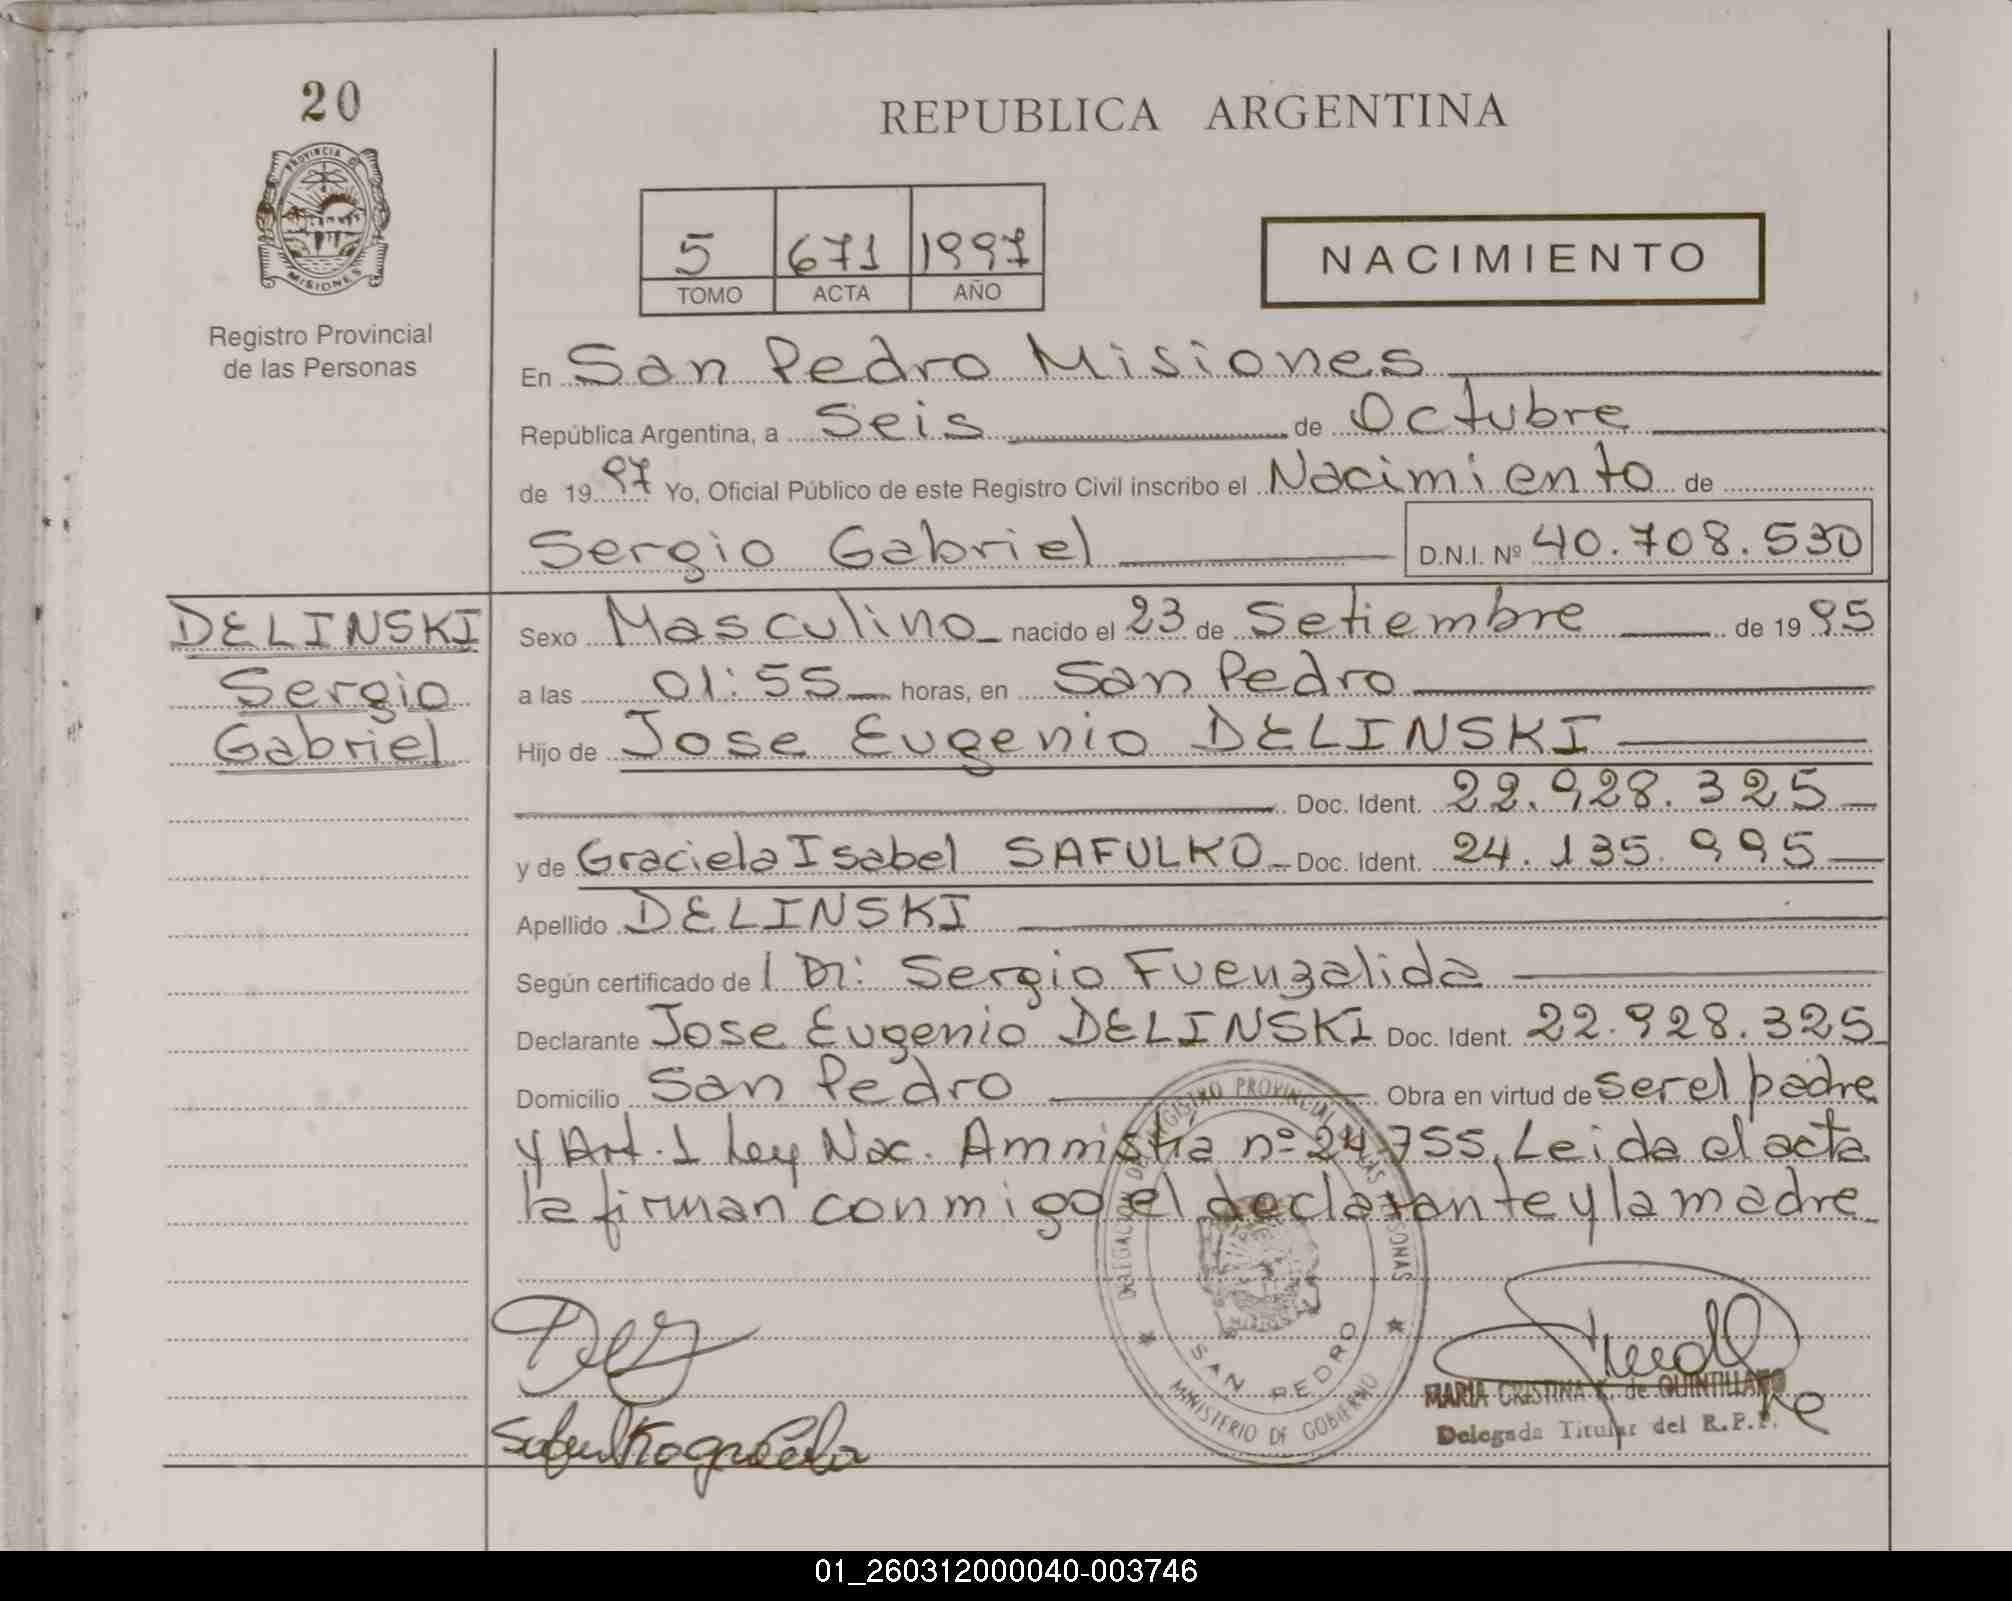 20
PROVINCIA DE
MISIONES
Registro Provincial
de las Personas
REPUBLICA ARGENTINA
5 671 1997
TOMO ACTA AÑO
NACIMIENTO
En San Pedro Misiones
República Argentina, a Seis de Octubre
de 19 97 Yo, Oficial Público de este Registro Civil inscribo el Nacimiento de
Sergio Gabriel D.N.I. Nº 40.708.530
DELINSKI
Sergio
Gabriel
Sexo Masculino nacido el 23 de Setiembre de 19 95
a las 01:55 horas, en San Pedro
Hijo de Jose Eugenio DELINSKI
Doc. Ident. 22.928.325
y de Graciela Isabel SAFULKO Doc. Ident. 24.135.995
Apellido DELINSKI
Según certificado de l Dr: Sergio Fuenzalida
Declarante Jose Eugenio DELINSKI Doc. Ident. 22.928.325
Domicilio San Pedro Obra en virtud de ser el padre
y Art. 1 Ley Nac. Amnistia nº 24.755. Leida el acta
la firman conmigo el declarante y la madre
DELEGACION DEL REGISTRO PROVINCIAL DE LAS PERSONAS
SAN PEDRO
MINISTERIO DE GOBIERNO
Safulko graciela
MARIA CRISTINA K. de QUINTILLANO
Delegada Titular del R.P.P.
01_260312000040-003746